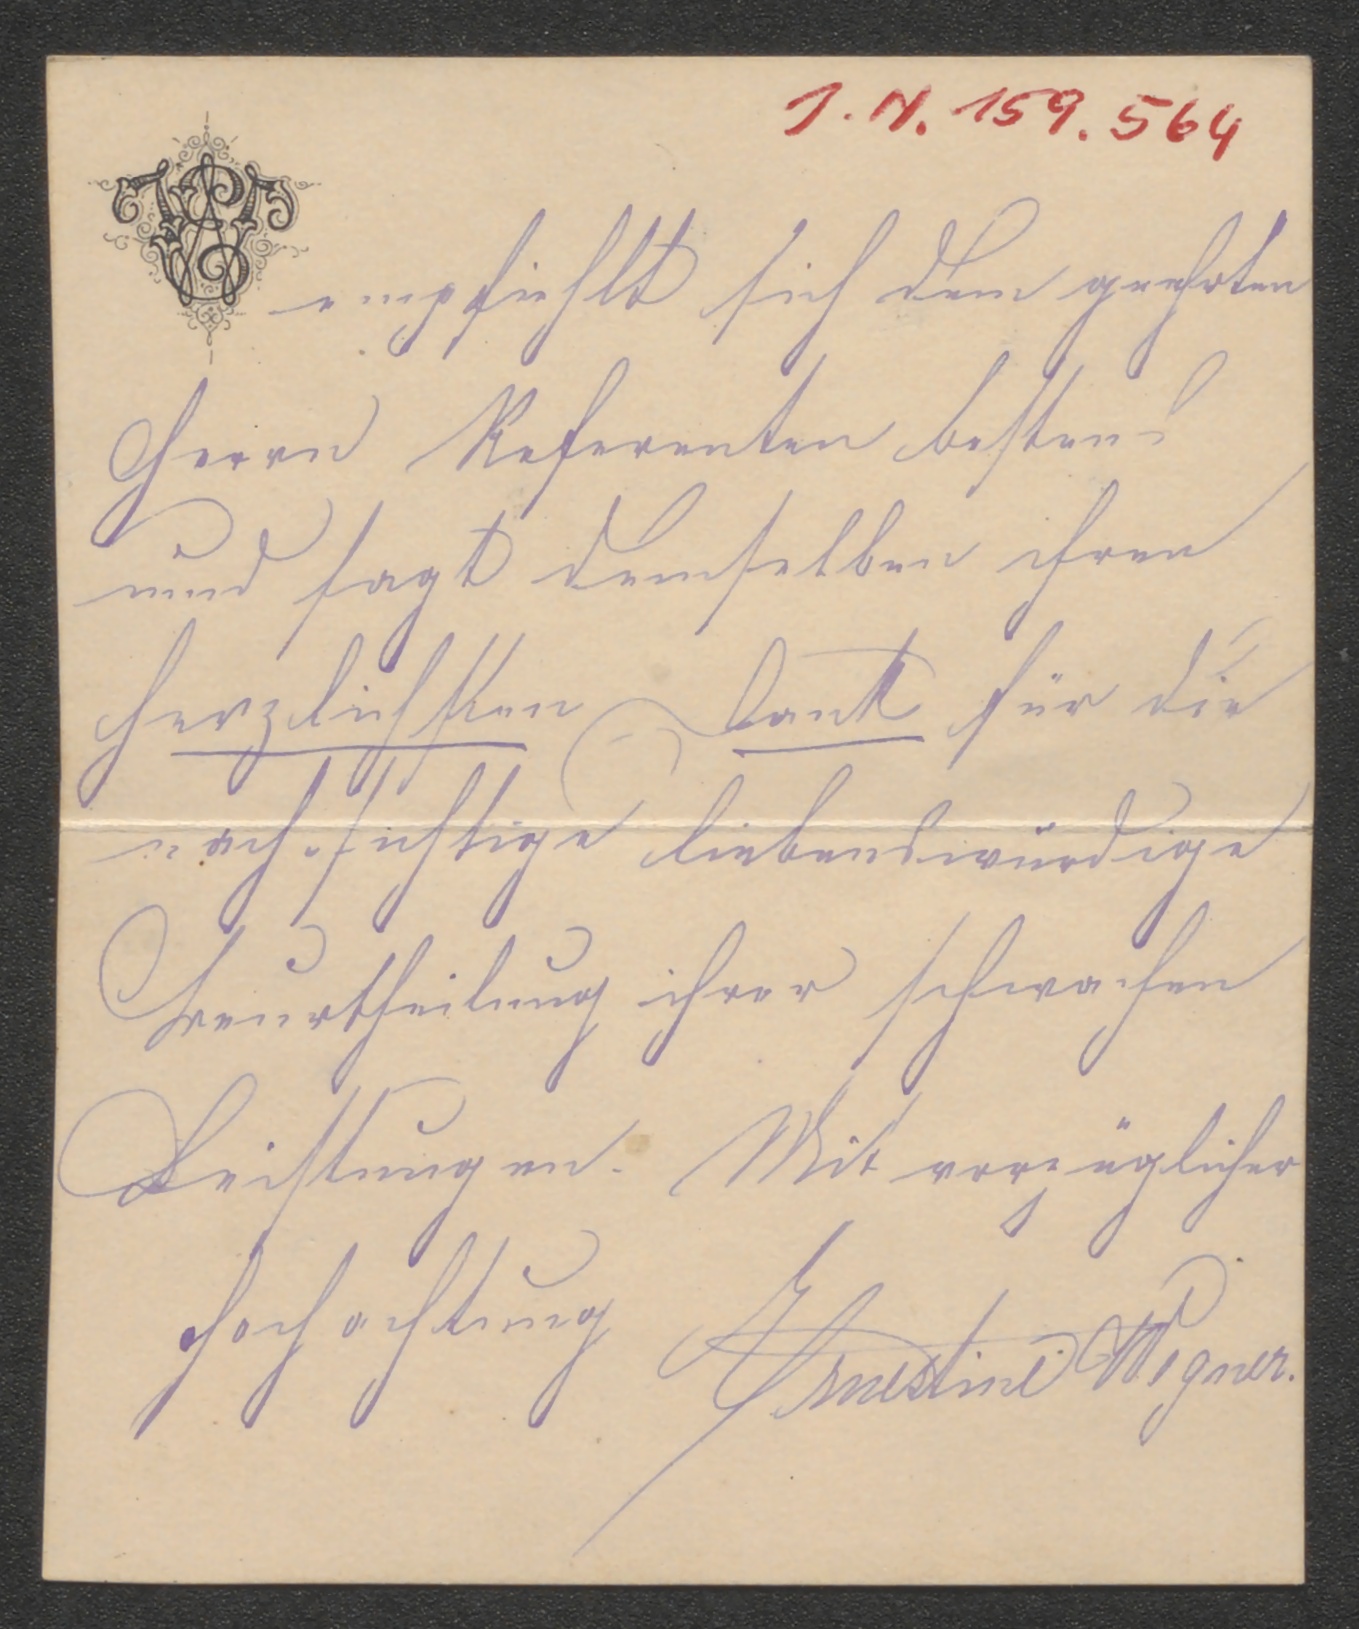 J. N. 159.564
empfiehlt sich dem geehrten
Herrn Referenten bestens
und sagt demselben ihren
herzlichsten Dank für die
nachsichtige liebenswürdige
Beurtheilung ihrer schwachen
Leistungen. Mit vorzüglicher
Hochachtung Ernestine Wegner.